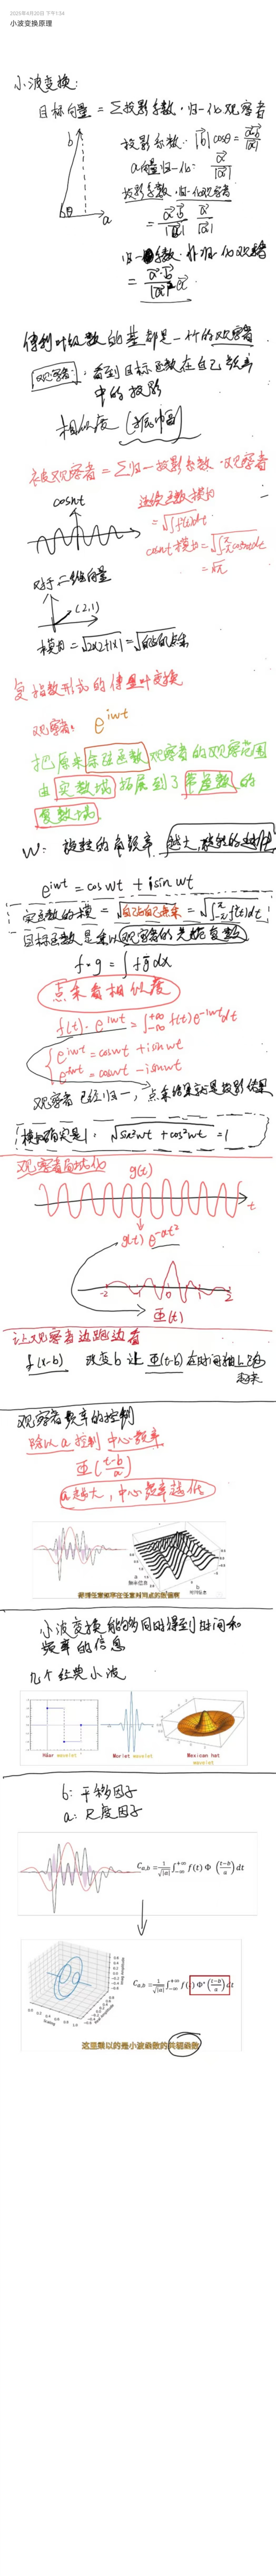 2025年4月20日 下午1:34
小波变换原理
小波变换:
目标向量 = ∑投影系数·归一化观察者
b
a
θ
投影系数: |b⃗| cosθ = a⃗·b⃗/|a⃗|
a向量归一化: a⃗/|a⃗|
投影系数·归一化观察者
= a⃗·b⃗/|a⃗| · a⃗/|a⃗|
归一系数·非归一化观察者
= a⃗·b⃗/|a⃗|² a⃗
傅利叶级数的基都是一个个的观察者
观察者: 看到目标函数在自己
中的投影
相似度 (振幅)
被观察者 = ∑归一投影系数·观察者
cosnt
连续函数模为
= √∫f²(t)dt
cosnt模为 = √∫cos²ntdt
= √π
对于二维向量
(2,1)
模为 = √2×2+1×1 = √自己的点乘
复指数形式的傅里叶变换
观察者: e^iwt
把原来余弦函数观察者的观察范围
由实数域拓展到了
复数域
W: 旋转的角频率,越大,旋转的越快
e^iwt = coswt + isinwt
实函数的模 = √自己与自己点乘 = √∫f²(t)dt
目标函数是乘以观察者的共轭复数
f·g = ∫fg̅dx
点乘看相似度
f(t)·e^iwt = ∫₋∞^+∞ f(t)e^-iwt dt
e^iwt = coswt + isinwt
e^-iwt = coswt - isinwt
观察者已经归一,点乘结果就是投影结果
模的确实是1: √sin²wt + cos²wt = 1
观察者局域化
g(t)
t
g(t) e^-at²
-2 0 2
Φ(t)
让观察者边跑边看
f(x-b) 改变b 让Φ(t-b)在时间轴上跑
起来
观察者频率的控制
除以a 控制 中心频率
Φ(t-b/a)
a越大,中心频率越低
小波变换能够同时得到时间和
频率的信息
几个经典小波
Haar wavelet
Morlet wavelet
Mexican hat wavelet
b: 平移因子
a: 尺度因子
C_a,b = 1/√|a| ∫₋∞^+∞ f(t) Φ (t-b/a) dt
C_a,b = 1/√|a| ∫₋∞^+∞ f(t) Φ* (t-b/a) dt
这里乘以的是小波函数的共轭函数